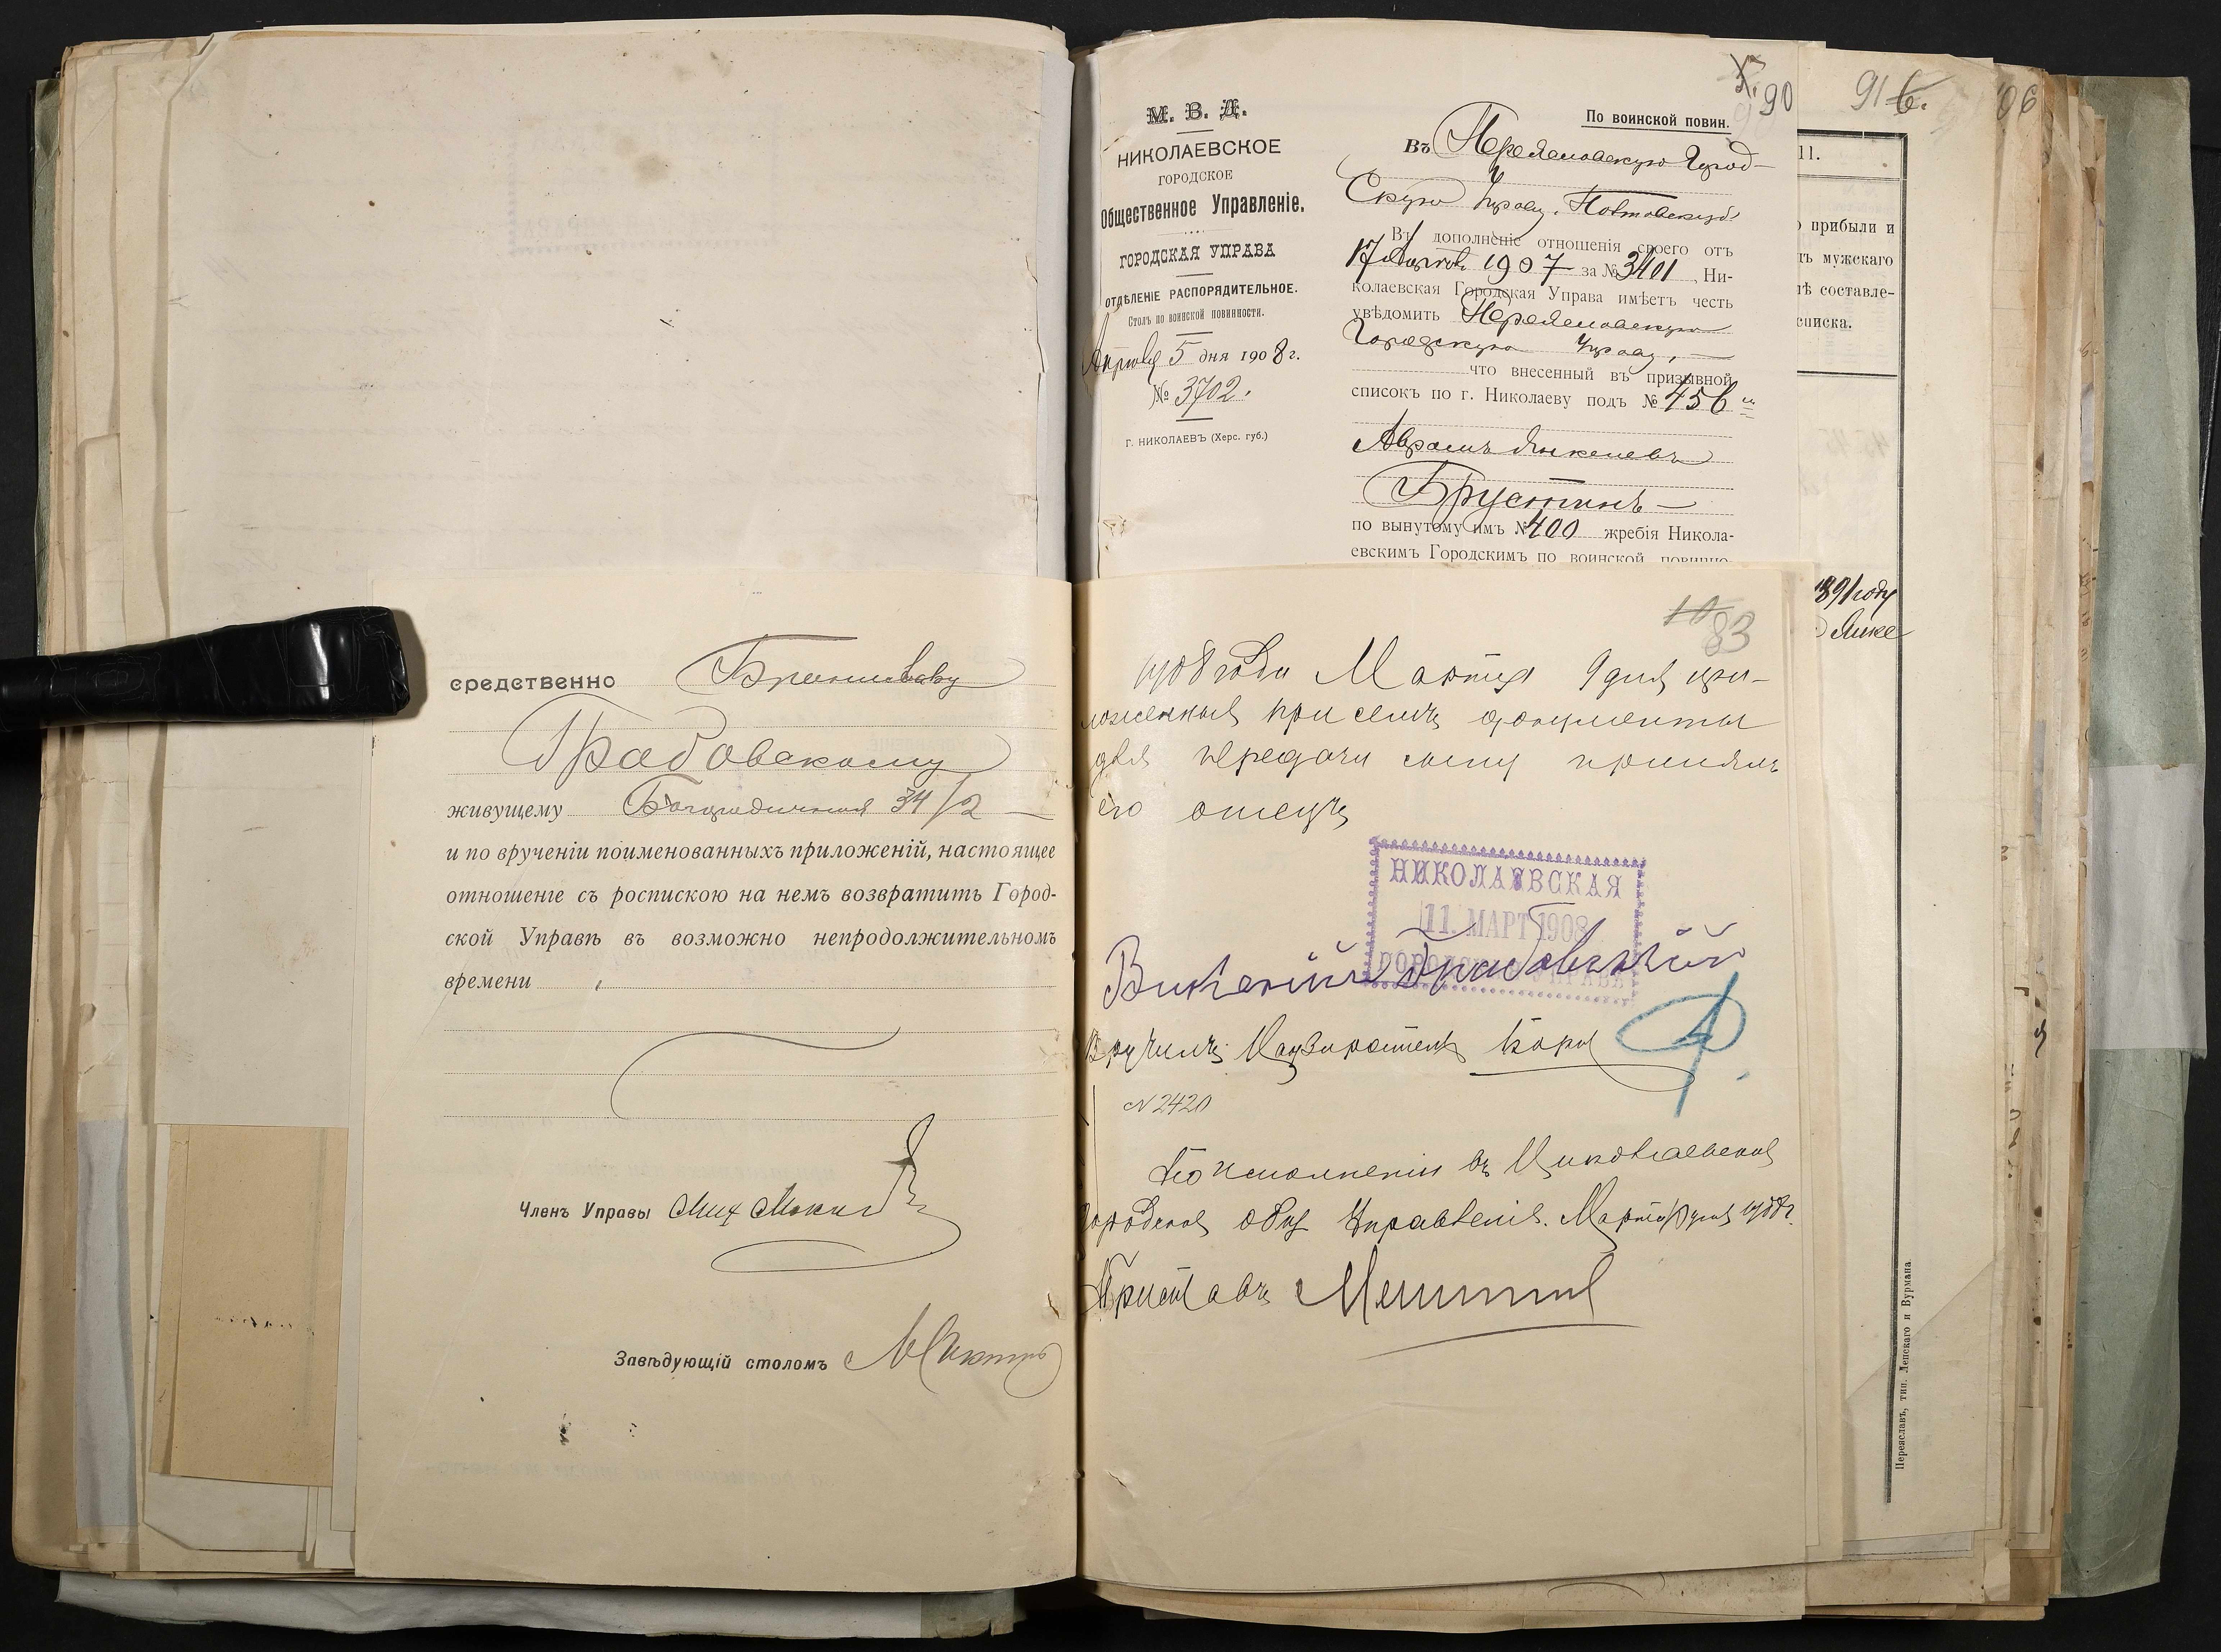 средственно Брониславу
Грабовскому
живущему Богородичная 34/2
и по врученіи поименованныхъ приложеній, настоящее
отношеніе съ роспискою на немъ возвратить Город-
ской Управѣ въ возможно непродолжительномъ
времени
Членъ Управы
Завѣдующій столомъ
М. В. Д.
НИКОЛАЕВСКОЕ
ГОРОДСКОЕ
Общественное Управленіе.
ГОРОДСКАЯ УПРАВА
ОТДѢЛЕНІЕ РАСПОРЯДИТЕЛЬНОЕ.
Столъ по воинской повинности.
Апрѣля 5 дня 1908 г.
№ 3702.
Г. НИКОЛАЕВЪ (Херс. губ.)
90
По воинской повин.
Въ Переяславскую Город-
скую Управу, Полтавской
Въ дополненіе отношенія своего отъ
17 1907 за № 3401, Ни-
колаевская Городская Управа имѣетъ честь
увѣдомить Переяславскую
Городскую Управу,
что внесенный въ призывной
списокъ по г. Николаеву подъ № 456
Аврамъ Янкелевъ
Брустинъ
по вынутому имъ № 400 жребія Никола-
евскимъ Городскимъ по воинской повинно-
91 6.
11.
прибыли и
мужскаго
составле-
списка.
1891 году
10 83
1908 года Марта 9 дня при-
ложенныя при семъ документы
для передачи сыну принялъ
его отецъ
НИКОЛАЕВСКАЯ
11. МАРТ 1908
Викентій Грабовскій
Вручилъ Надзиратель
№ 2420
По исполненіи въ Николаевское
Городское общ Управленіе. Марта дня 1908 г.
Приставъ
Переяславъ, тип. Лепскаго и Вурмана